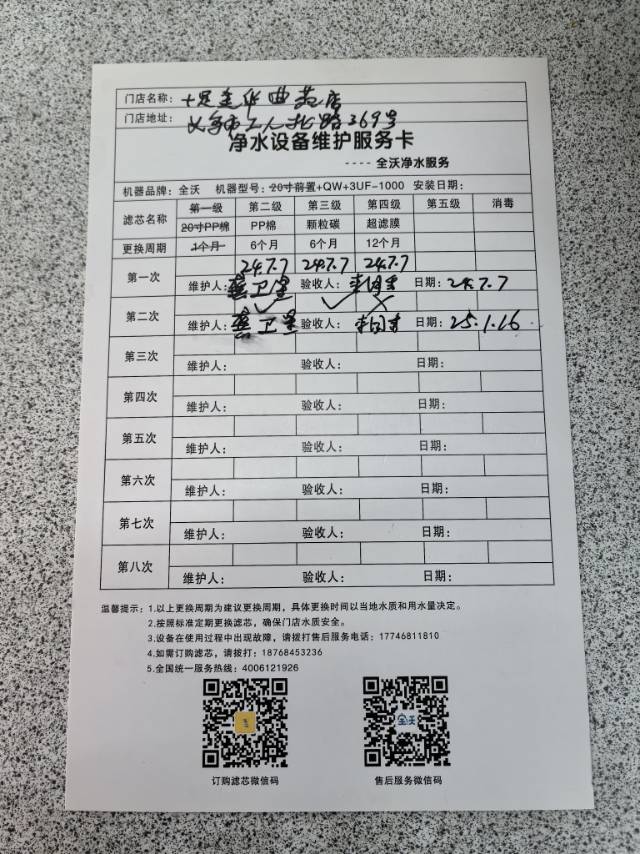 门店名称：十足金华曲苑店
门店地址：义乌市工人北路369号
净水设备维护服务卡
----全沃净水服务
机器品牌：全沃 机器型号：20寸前置+QW+3UF-1000 安装日期：
滤芯名称 第一级 第二级 第三级 第四级 第五级 消毒
20寸PP棉 PP棉 颗粒碳 超滤膜
更换周期 1个月 6个月 6个月 12个月
第一次 24.7.7 24.7.7 24.7.7
维护人： 卫星 验收人： 日期：24.7.7
第二次 ✓ ✓ ✗
维护人： 卫星 验收人： 日期：25.1.16
第三次
维护人： 验收人： 日期：
第四次
维护人： 验收人： 日期：
第五次
维护人： 验收人： 日期：
第六次
维护人： 验收人： 日期：
第七次
维护人： 验收人： 日期：
第八次
维护人： 验收人： 日期：
温馨提示：1.以上更换周期为建议更换周期，具体更换时间以当地水质和用水量决定。
2.按照标准定期更换滤芯，确保门店水质安全。
3.设备在使用过程中出现故障，请拨打售后服务电话：17746811810
4.如需订购滤芯，请拨打：18768453236
5.全国统一服务热线：4006121926
全沃
订购滤芯微信码 售后服务微信码